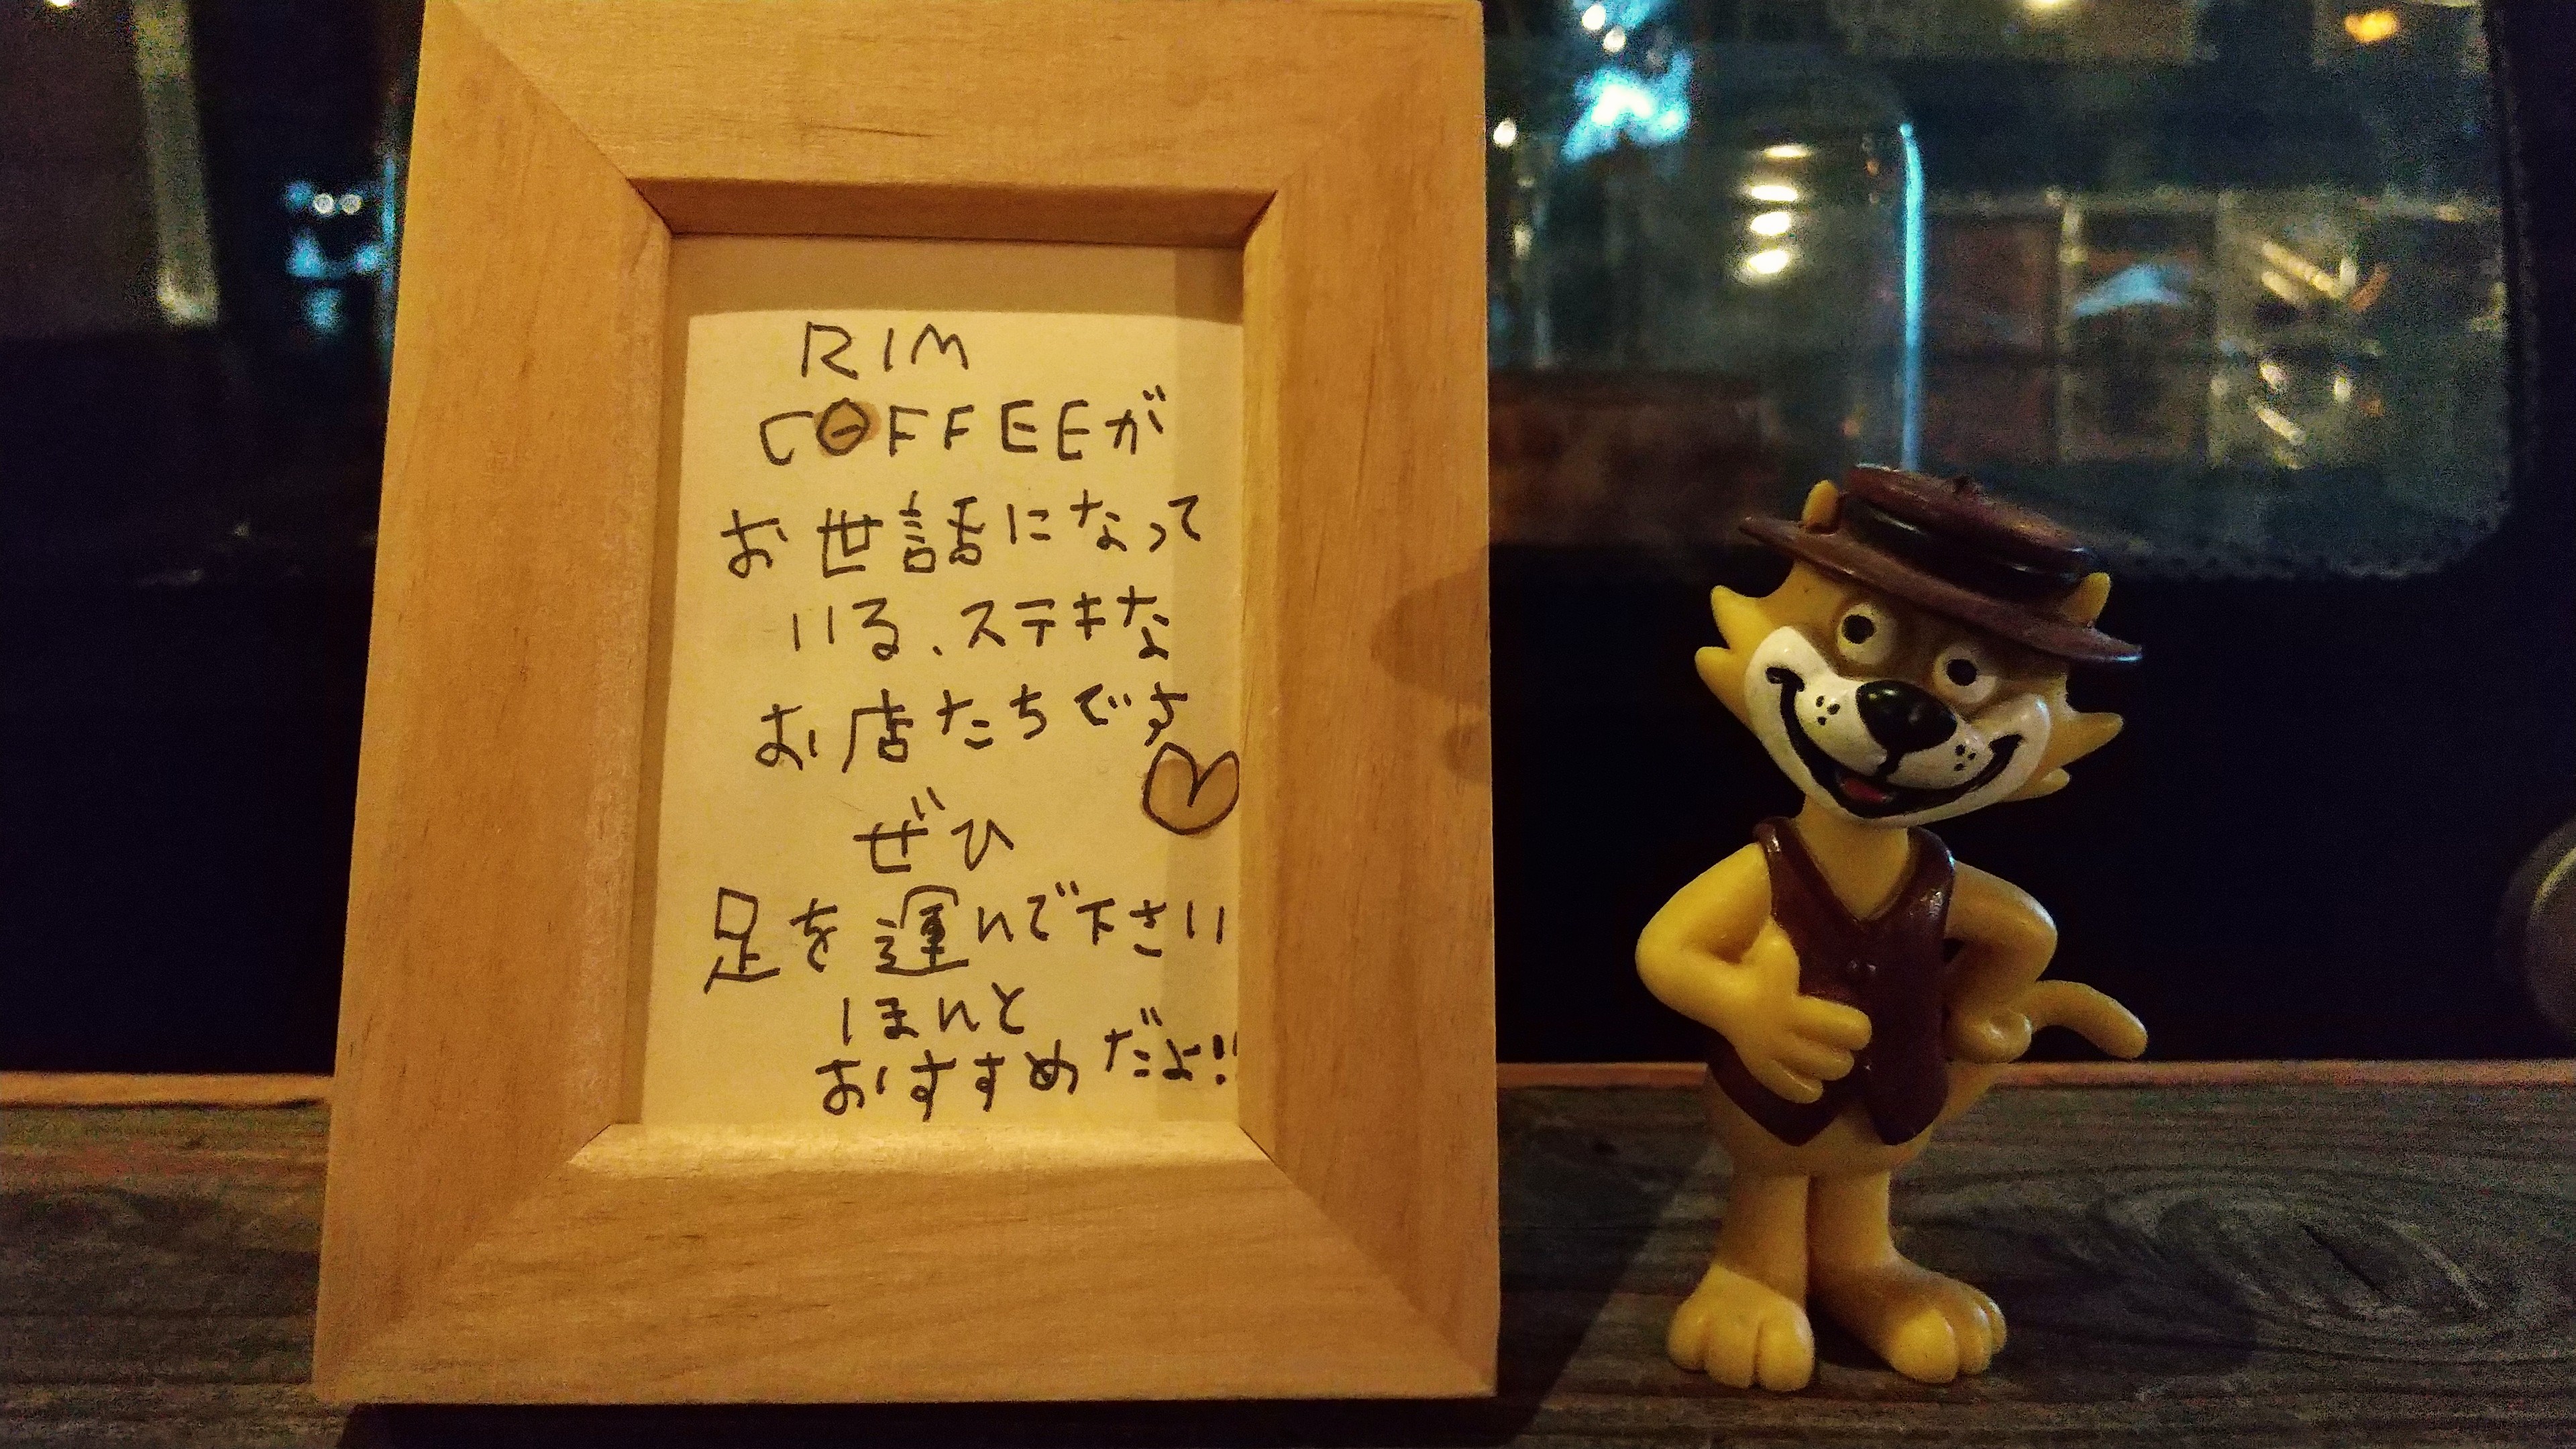 RIM
COFFEEが
お世話になって
いる、ステキな
お店たちです♡
ぜひ
足を運んで下さい
ほんと
おすすめだよ!!